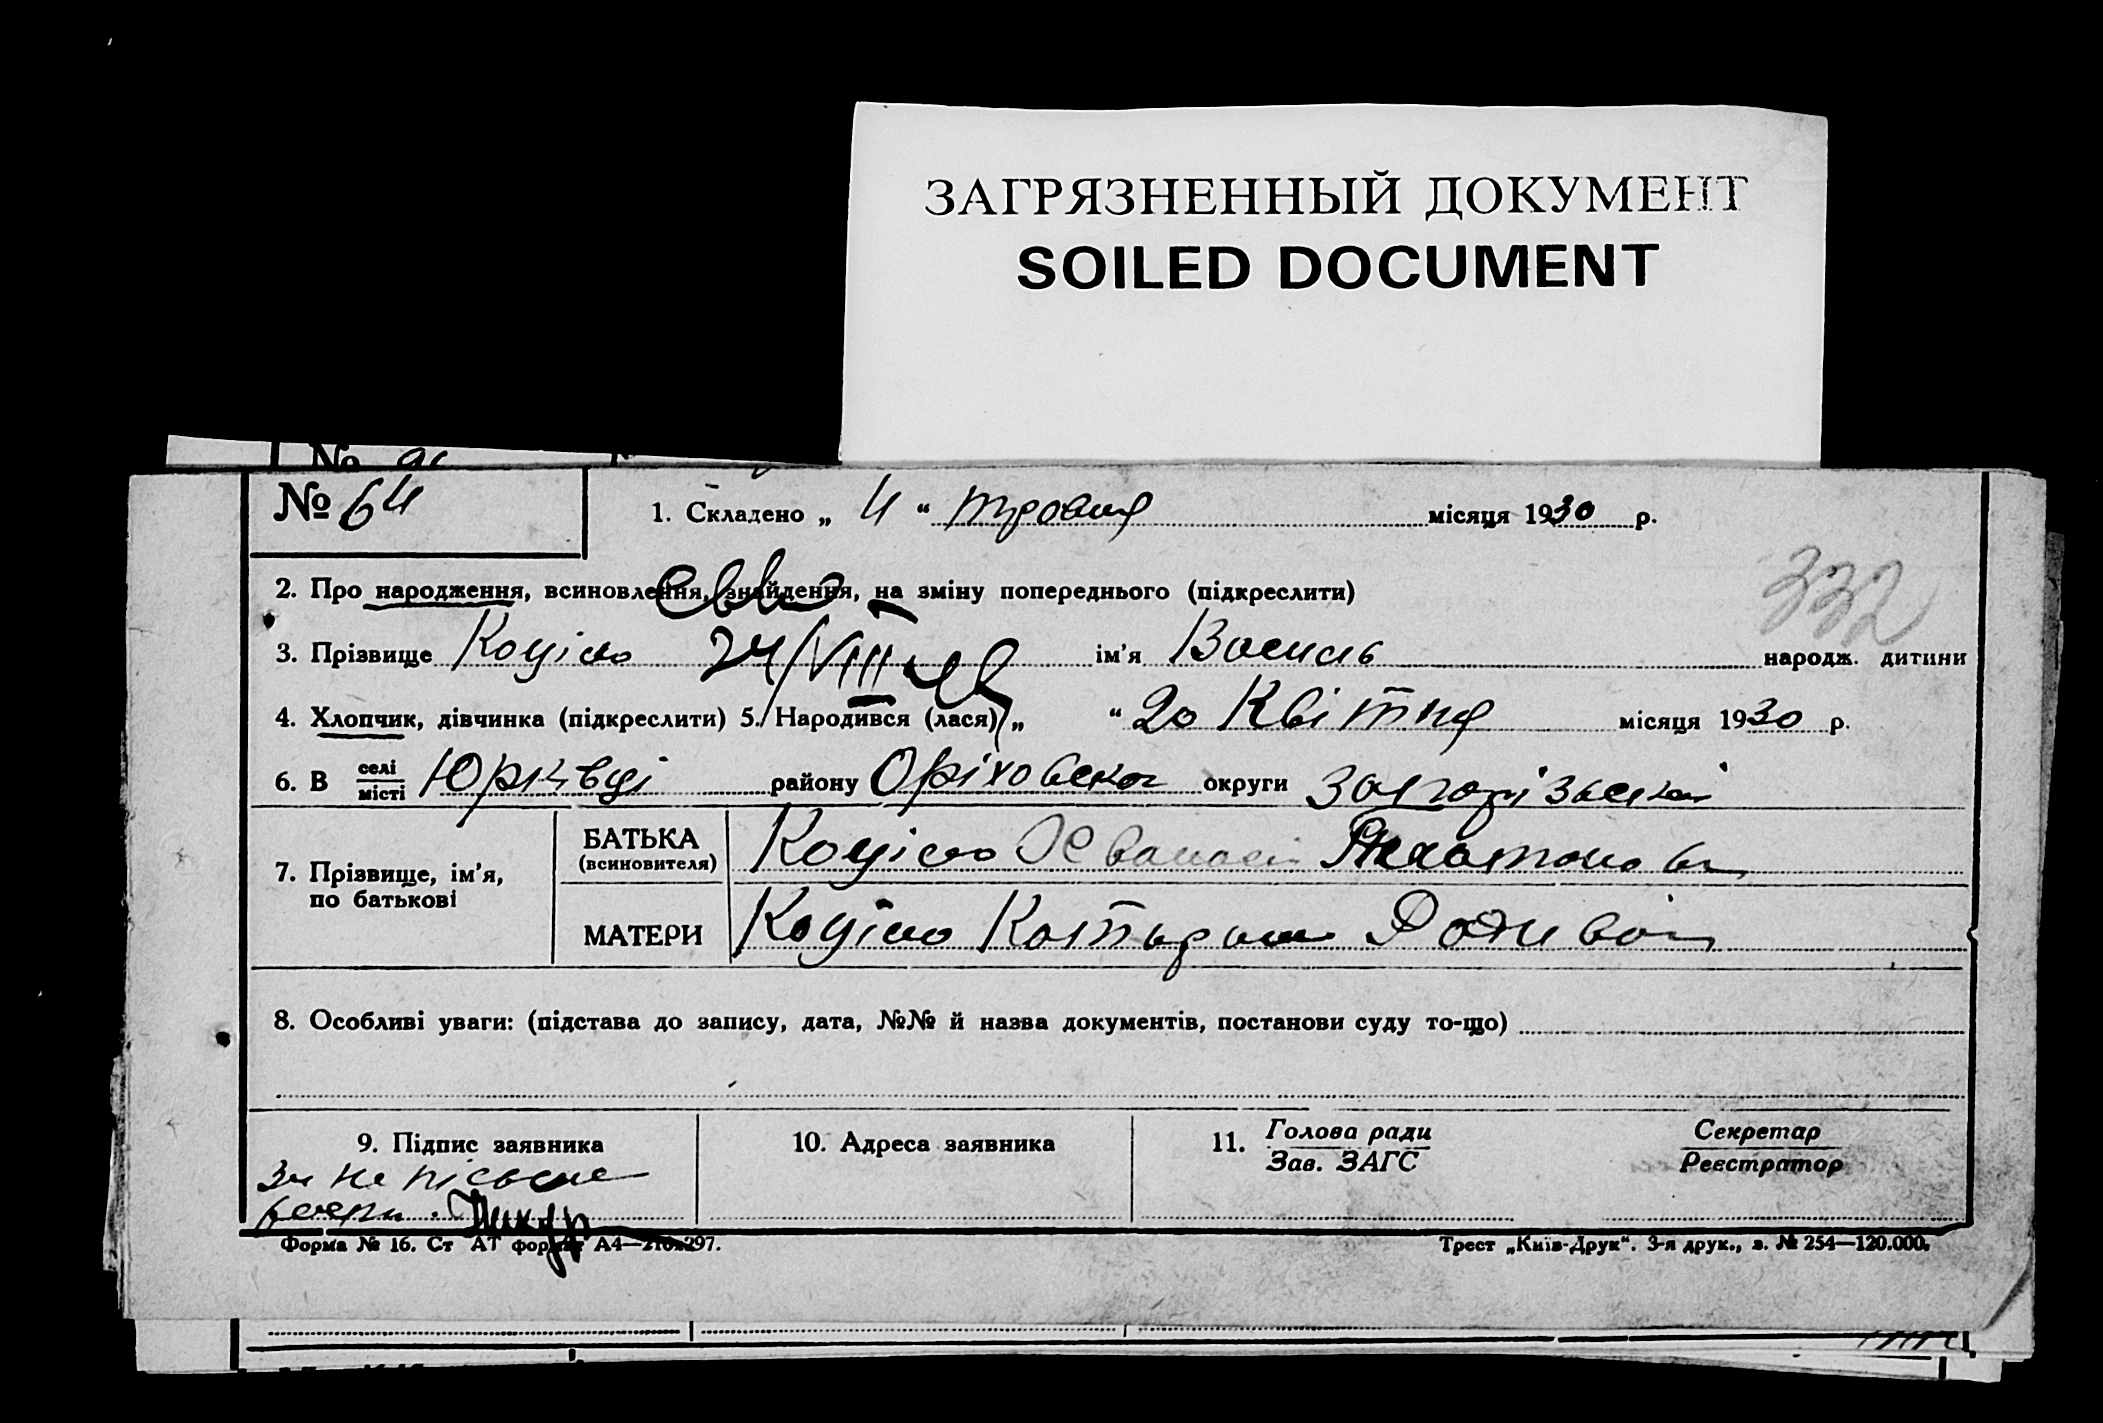 ЗАГРЯЗНЕННЫЙ ДОКУМЕНТ
SOILED DOCUMENT
№ 64
1. Складено „ 4 “ травня місяця 1930 р.
2. Про народження, всиновлення, знайдення, на зміну попереднього (підкреслити)
332
3. Прізвище Коціло 24/VIII ім'я Василь народж. дитини
4. Хлопчик, дівчинка (підкреслити) 5. Народився (лася) „ “ 20 Квітня місяця 1930 р.
6. В селі місті Юрківці району Оріховском округи Запорізькій
7. Прізвище, ім'я, по батькові
БАТЬКА (всиновителя) Коціло
МАТЕРИ Коціло
8. Особливі уваги: (підстава до запису, дата, №№ й назва документів, постанови суду то-що)
9. Підпис заявника
10. Адреса заявника
11. Голова ради Зав. ЗАГС
Секретар Реєстратор
За не пісьме
Форма № 16. Ст АТ формат А4—210х297.
Трест „Київ-Друк“. 3-я друк., з. № 254—120.000.